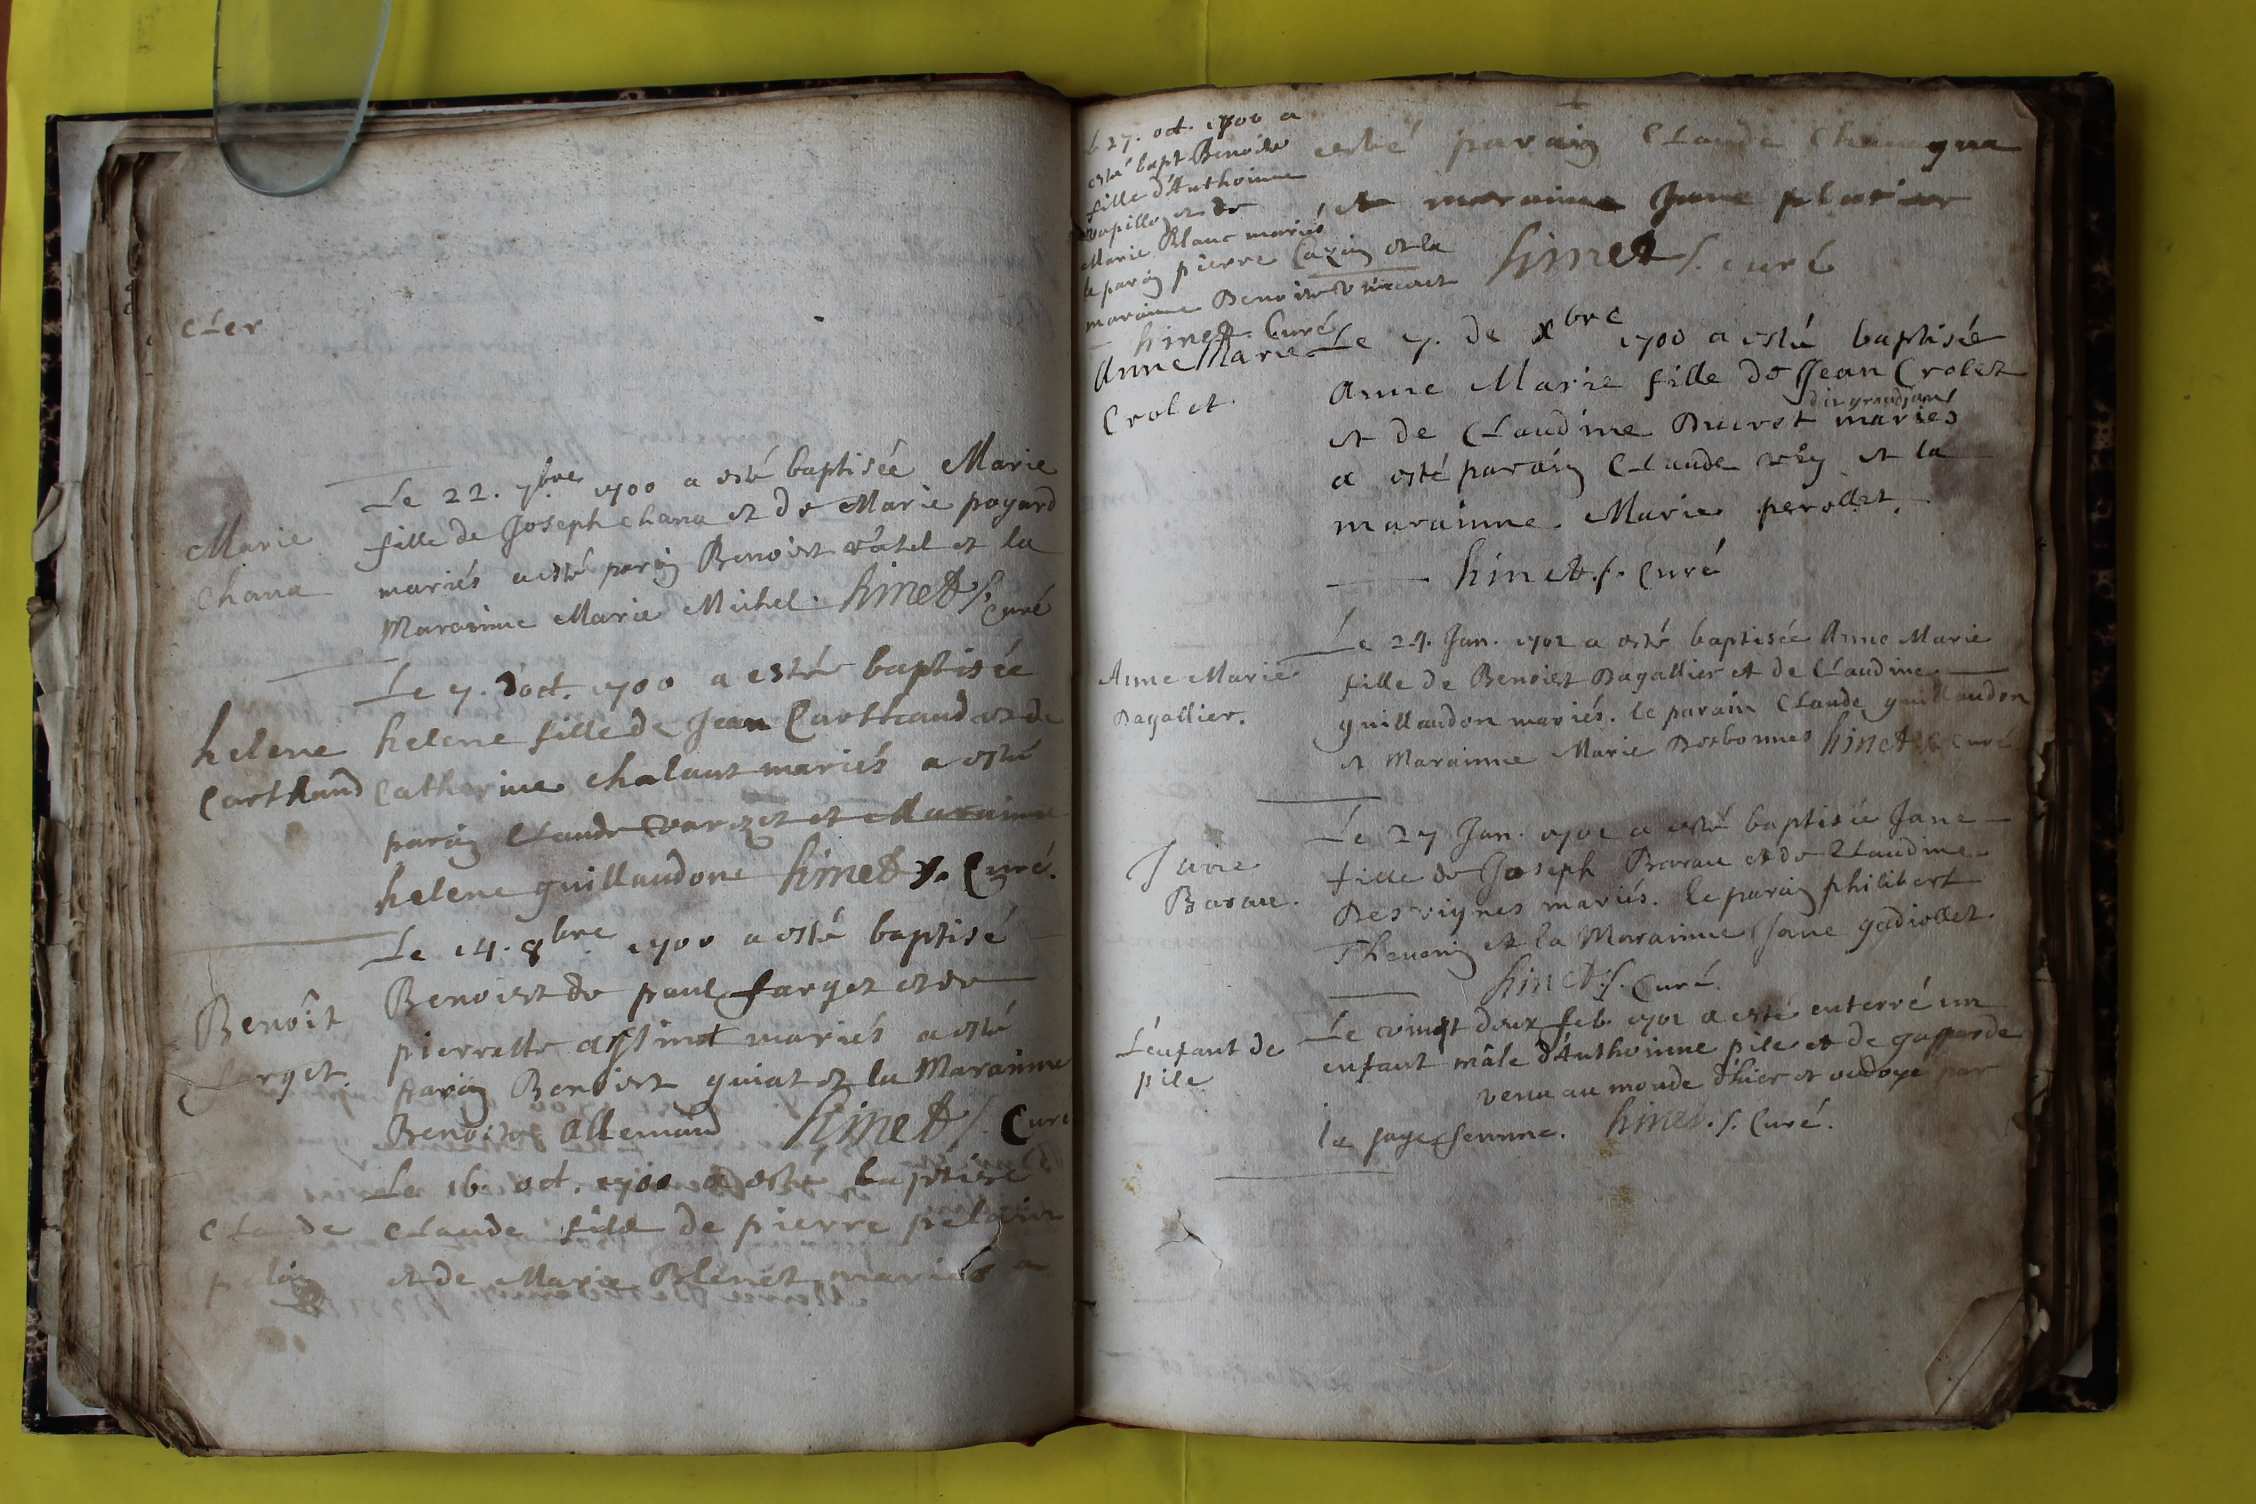 cLer
Le 22. 7bre 1700 a esté baptisée Marie
Marie
Chana
fille de Joseph chana et de Marie poyard
mariés a esté paraĩ Benoist ratel et la
Marainne Marie Michel. hinet s. Curé
Le 7. d'oct. 1700 a esté baptisée
helene
Carthaud
helene fille de Jean Carthaud et de
Catherine chalant mariés a esté
paraĩ cLaude varezet et Marainne
helene guillaudone hinet s. Curé.
Le 14. 8bre 1700 a esté baptisé
Benoît
farget.
Benoist de paul farget et de
pierrette mariés a esté
paraĩ Benoist guiat et la Marainne
Benoiste Allemand hinet s. Curé
Le 16. oct. 1700 a esté baptisé
cLaude
cLaude de pierre
et de Marie mariés a
le 27. oct. 1700 a
esté bapt Benoiste
fille d'Anthoinne
papillon et de
Marie Blanc mariés
le paraĩ pierre Cazaĩ et la
marainne Benoiste vincent
hinet. Curé
esté paraĩ cLaude
et marainne Jane
hinet s. curé
Anne Marie
Crolet.
Le 7. de xbre 1700 a esté baptisée
Anne Marie fille de Jean Crolet
dit grandjean
et de cLaudine Ducrot mariés
a esté paraĩ cLaude rey et la
marainne. Marie perollet.
hinet. s. Curé
Anne Marie
Dagallier.
Le 24. Jan. 1701 a esté baptisée Anne Marie
fille de Benoist Dagallier et de cLaudine
guillaudon mariés. le parain cLaude guillaudon
et Marainne Marie Desbonnes hinet s. curé
Jane
Barau.
Le 27 Jan. 1701 a esté baptisée Jane
fille de Joseph Barau et de cLaudine
Desvignes mariés. le paraĩ philibert
Thevenĩ et la Marainne Jane gadiollet.
hinet s. Curé.
L'enfant de
pile
Le vingt deux feb. 1701 a esté enterré un
enfant mâle d'Anthoinne pile et de gasparde
venu au monde d'hier et ondoyé par
la sage femme. hinet. s. Curé.